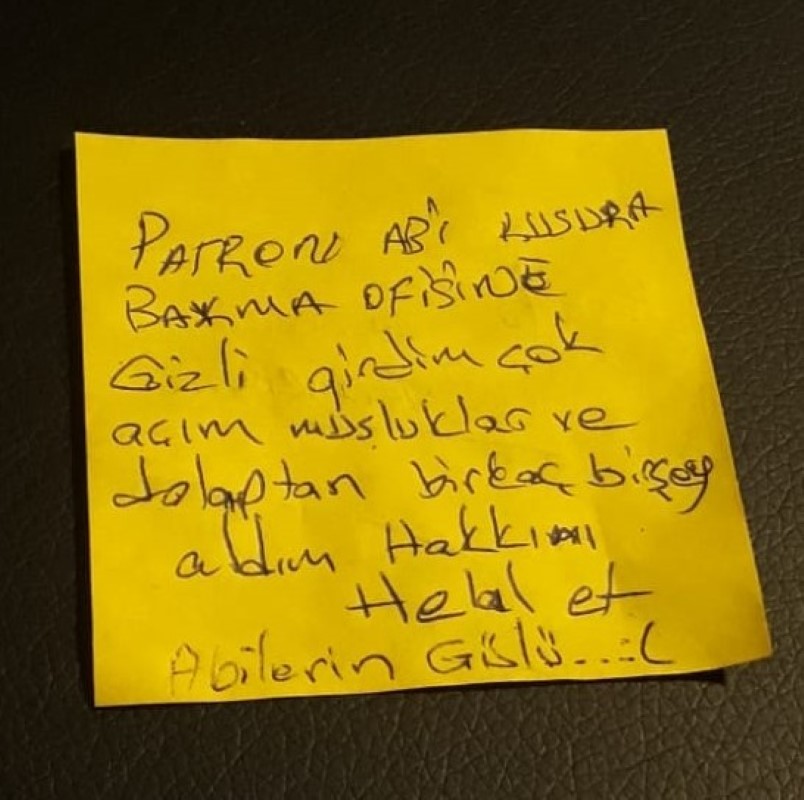 PATRON ABİ KUSURA
BAKMA OFİSİNE
Gizli girdim çok
açım musluklar ve
dolaptan birkaç birşey
aldım Hakkını
Helal et
Abilerin Gülü...:(